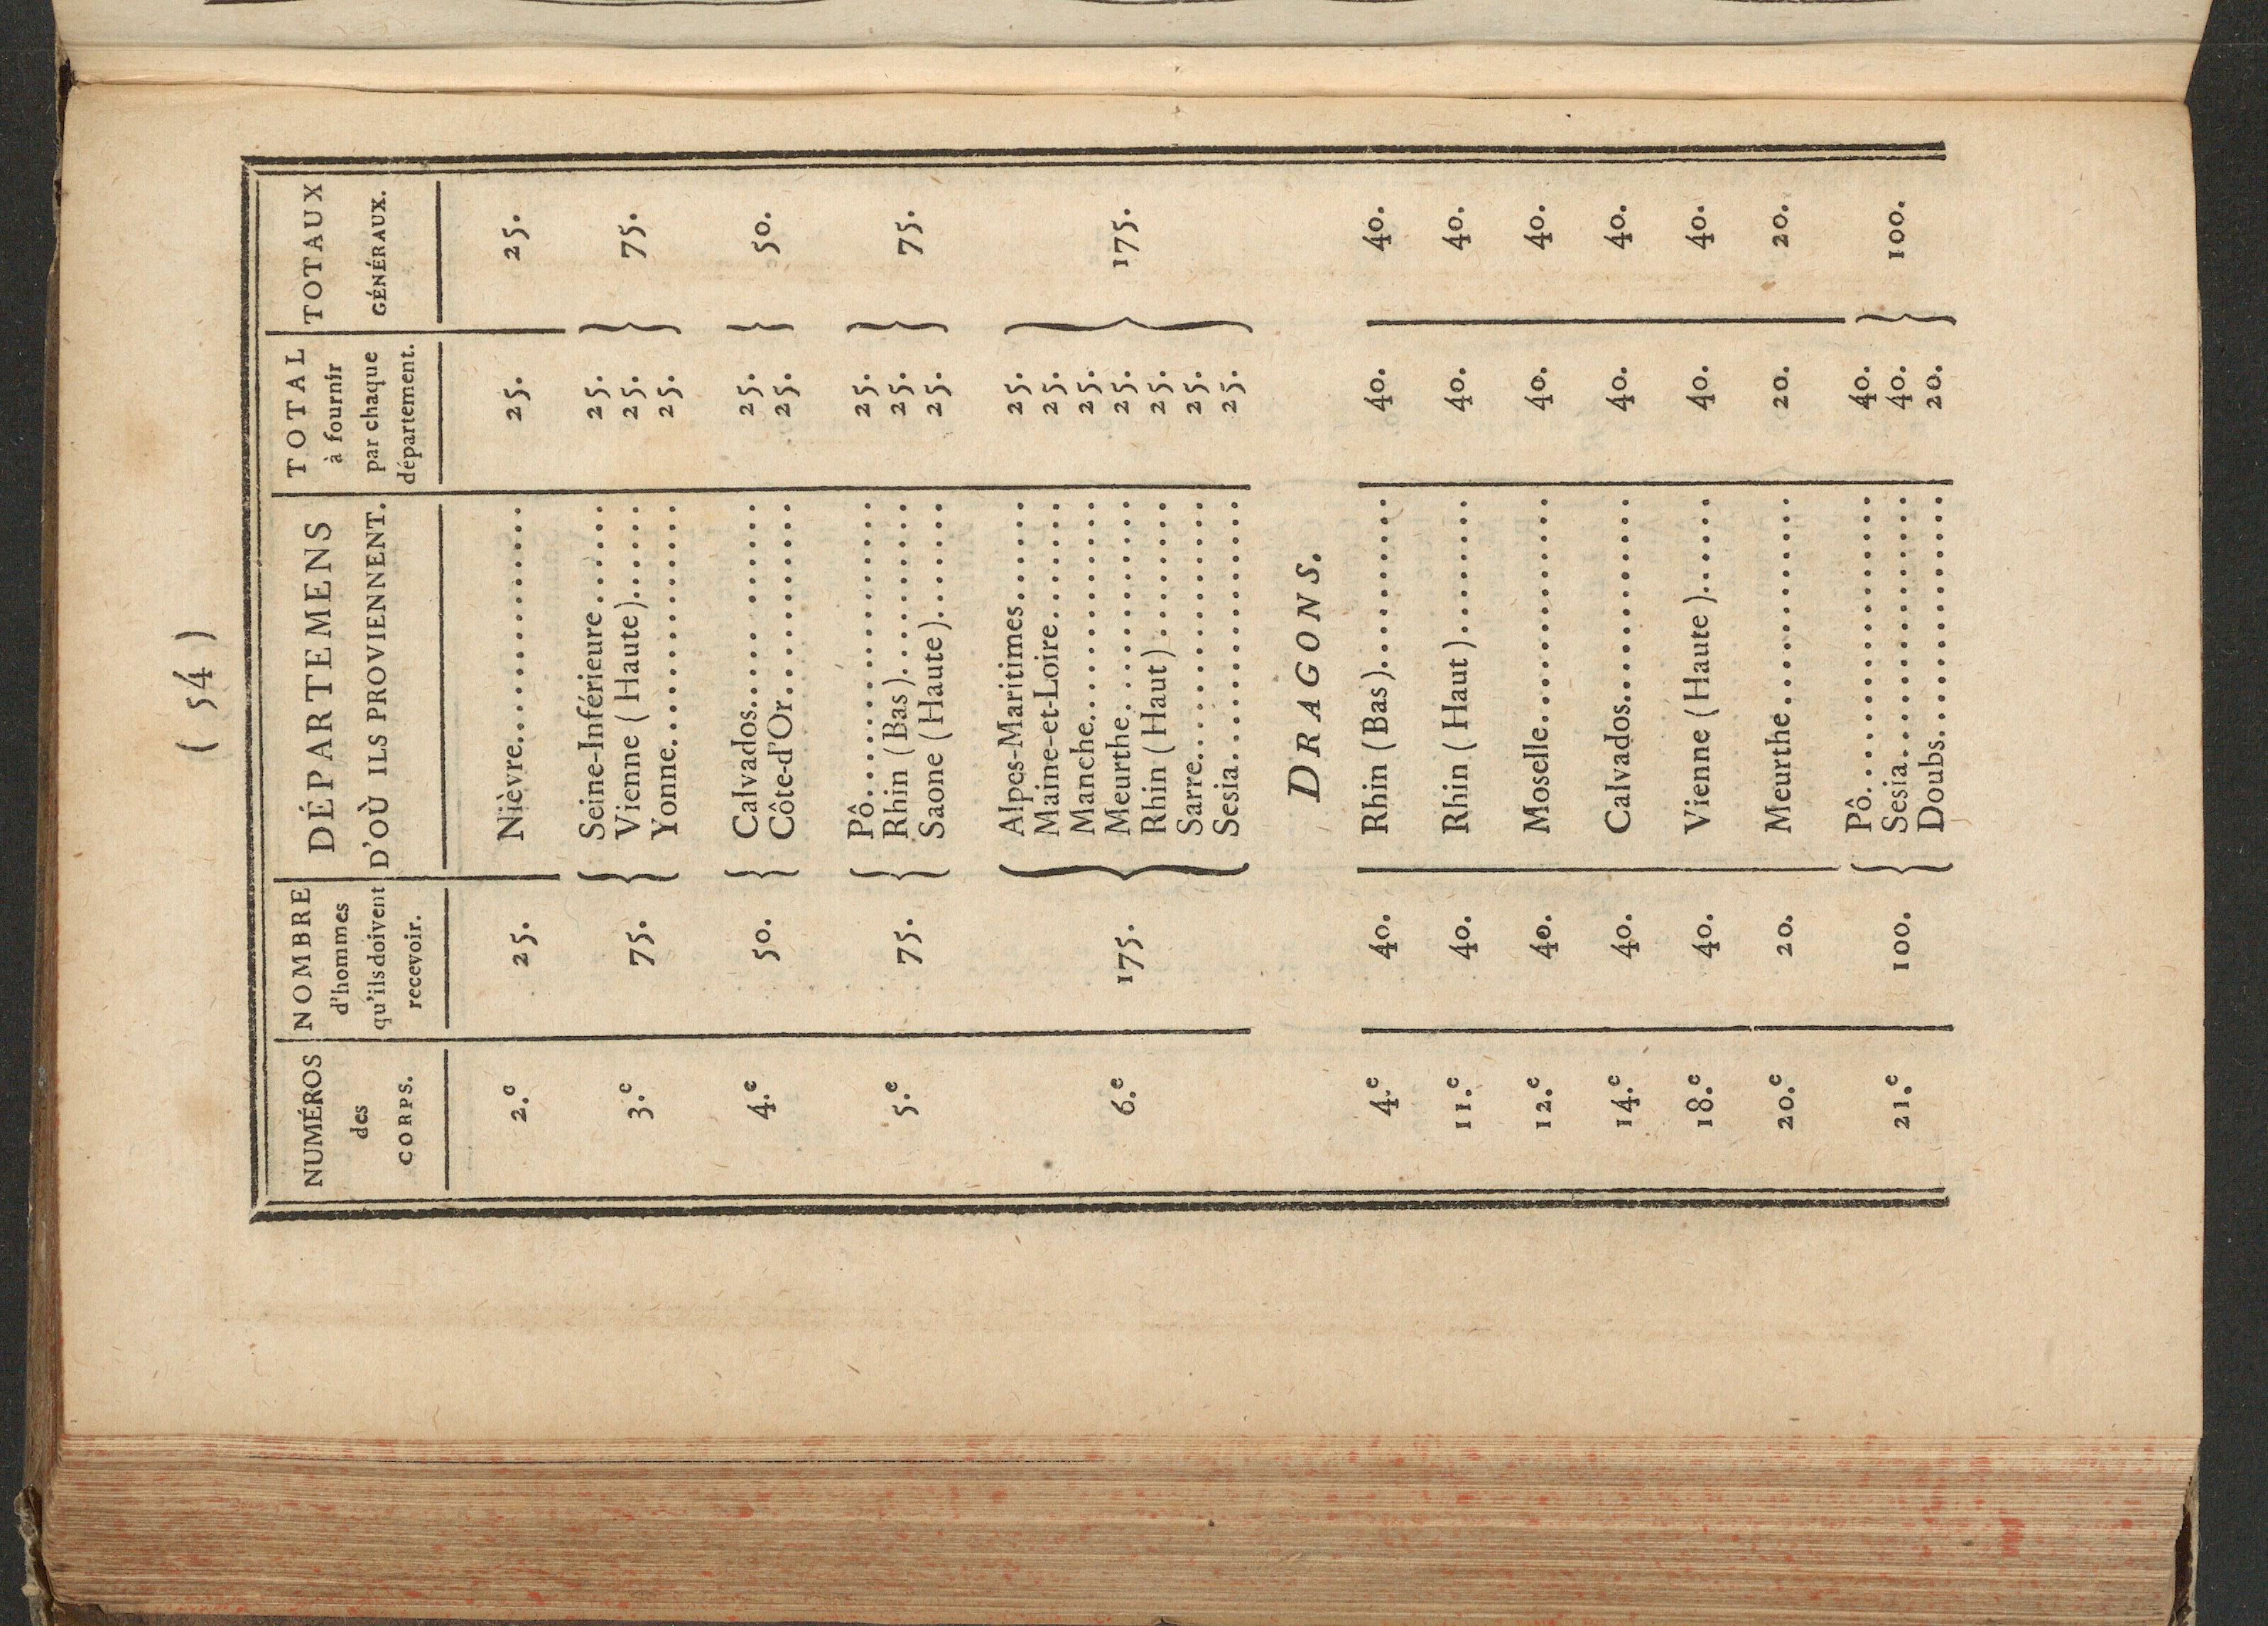 ( 54 )
NUMÉROS des CORPS. | NOMBRE d'hommes qu'ils doivent recevoir. | DÉPARTEMENS D'OÙ ILS PROVIENNENT. | TOTAL à fournir par chaque département. | TOTAUX GÉNÉRAUX.
2.e 25. Nièvre............ 25. 25.
Seine-Inférieure...... 25.
3.e 75. Vienne (Haute)...... 25. 75.
Yonne............ 25.
4.e 50. Calvados........... 25. 50.
Côte-d'Or.......... 25.
Pô............... 25.
5.e 75. Rhin (Bas)......... 25. 75.
Saone (Haute)....... 25.
Alpes-Maritimes...... 25.
Maine-et-Loire....... 25.
Manche............ 25.
6.e 175. Meurthe........... 25. 175.
Rhin (Haut)........ 25.
Sarre............. 25.
Sesia............. 25.
DRAGONS.
4.e 40. Rhin (Bas)......... 40. 40.
11.e 40. Rhin (Haut)........ 40. 40.
12.e 40. Moselle............ 40. 40.
14.e 40. Calvados........... 40. 40.
18.e 40. Vienne (Haute)...... 40. 40.
20.e 20. Meurthe........... 20. 20.
Pô............... 40.
21.e 100. Sesia............. 40. 100.
Doubs............. 20.